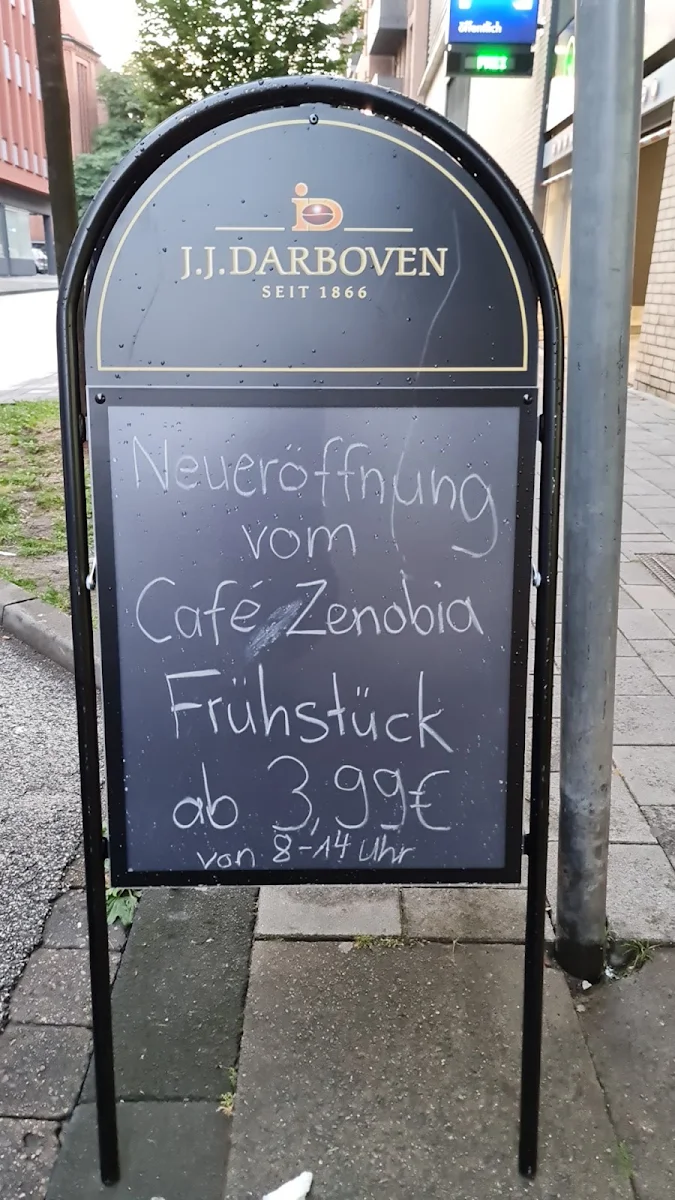 öffentlich
FREI
J.J.DARBOVEN
SEIT 1866
Neueröffnung
vom
Café Zenobia
Frühstück
ab 3,99€
von 8-14 Uhr